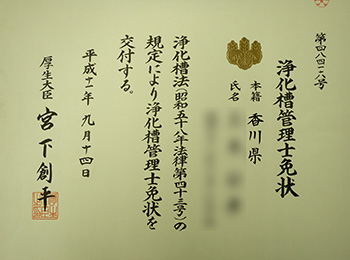 第四八四二八号
浄化槽管理士免状
本籍 香川県
氏名
浄化槽法(昭和五十八年法律第四十三号)の
規定により浄化槽管理士免状を
交付する。
平成十一年 九月十四日
厚生大臣 宮下創平